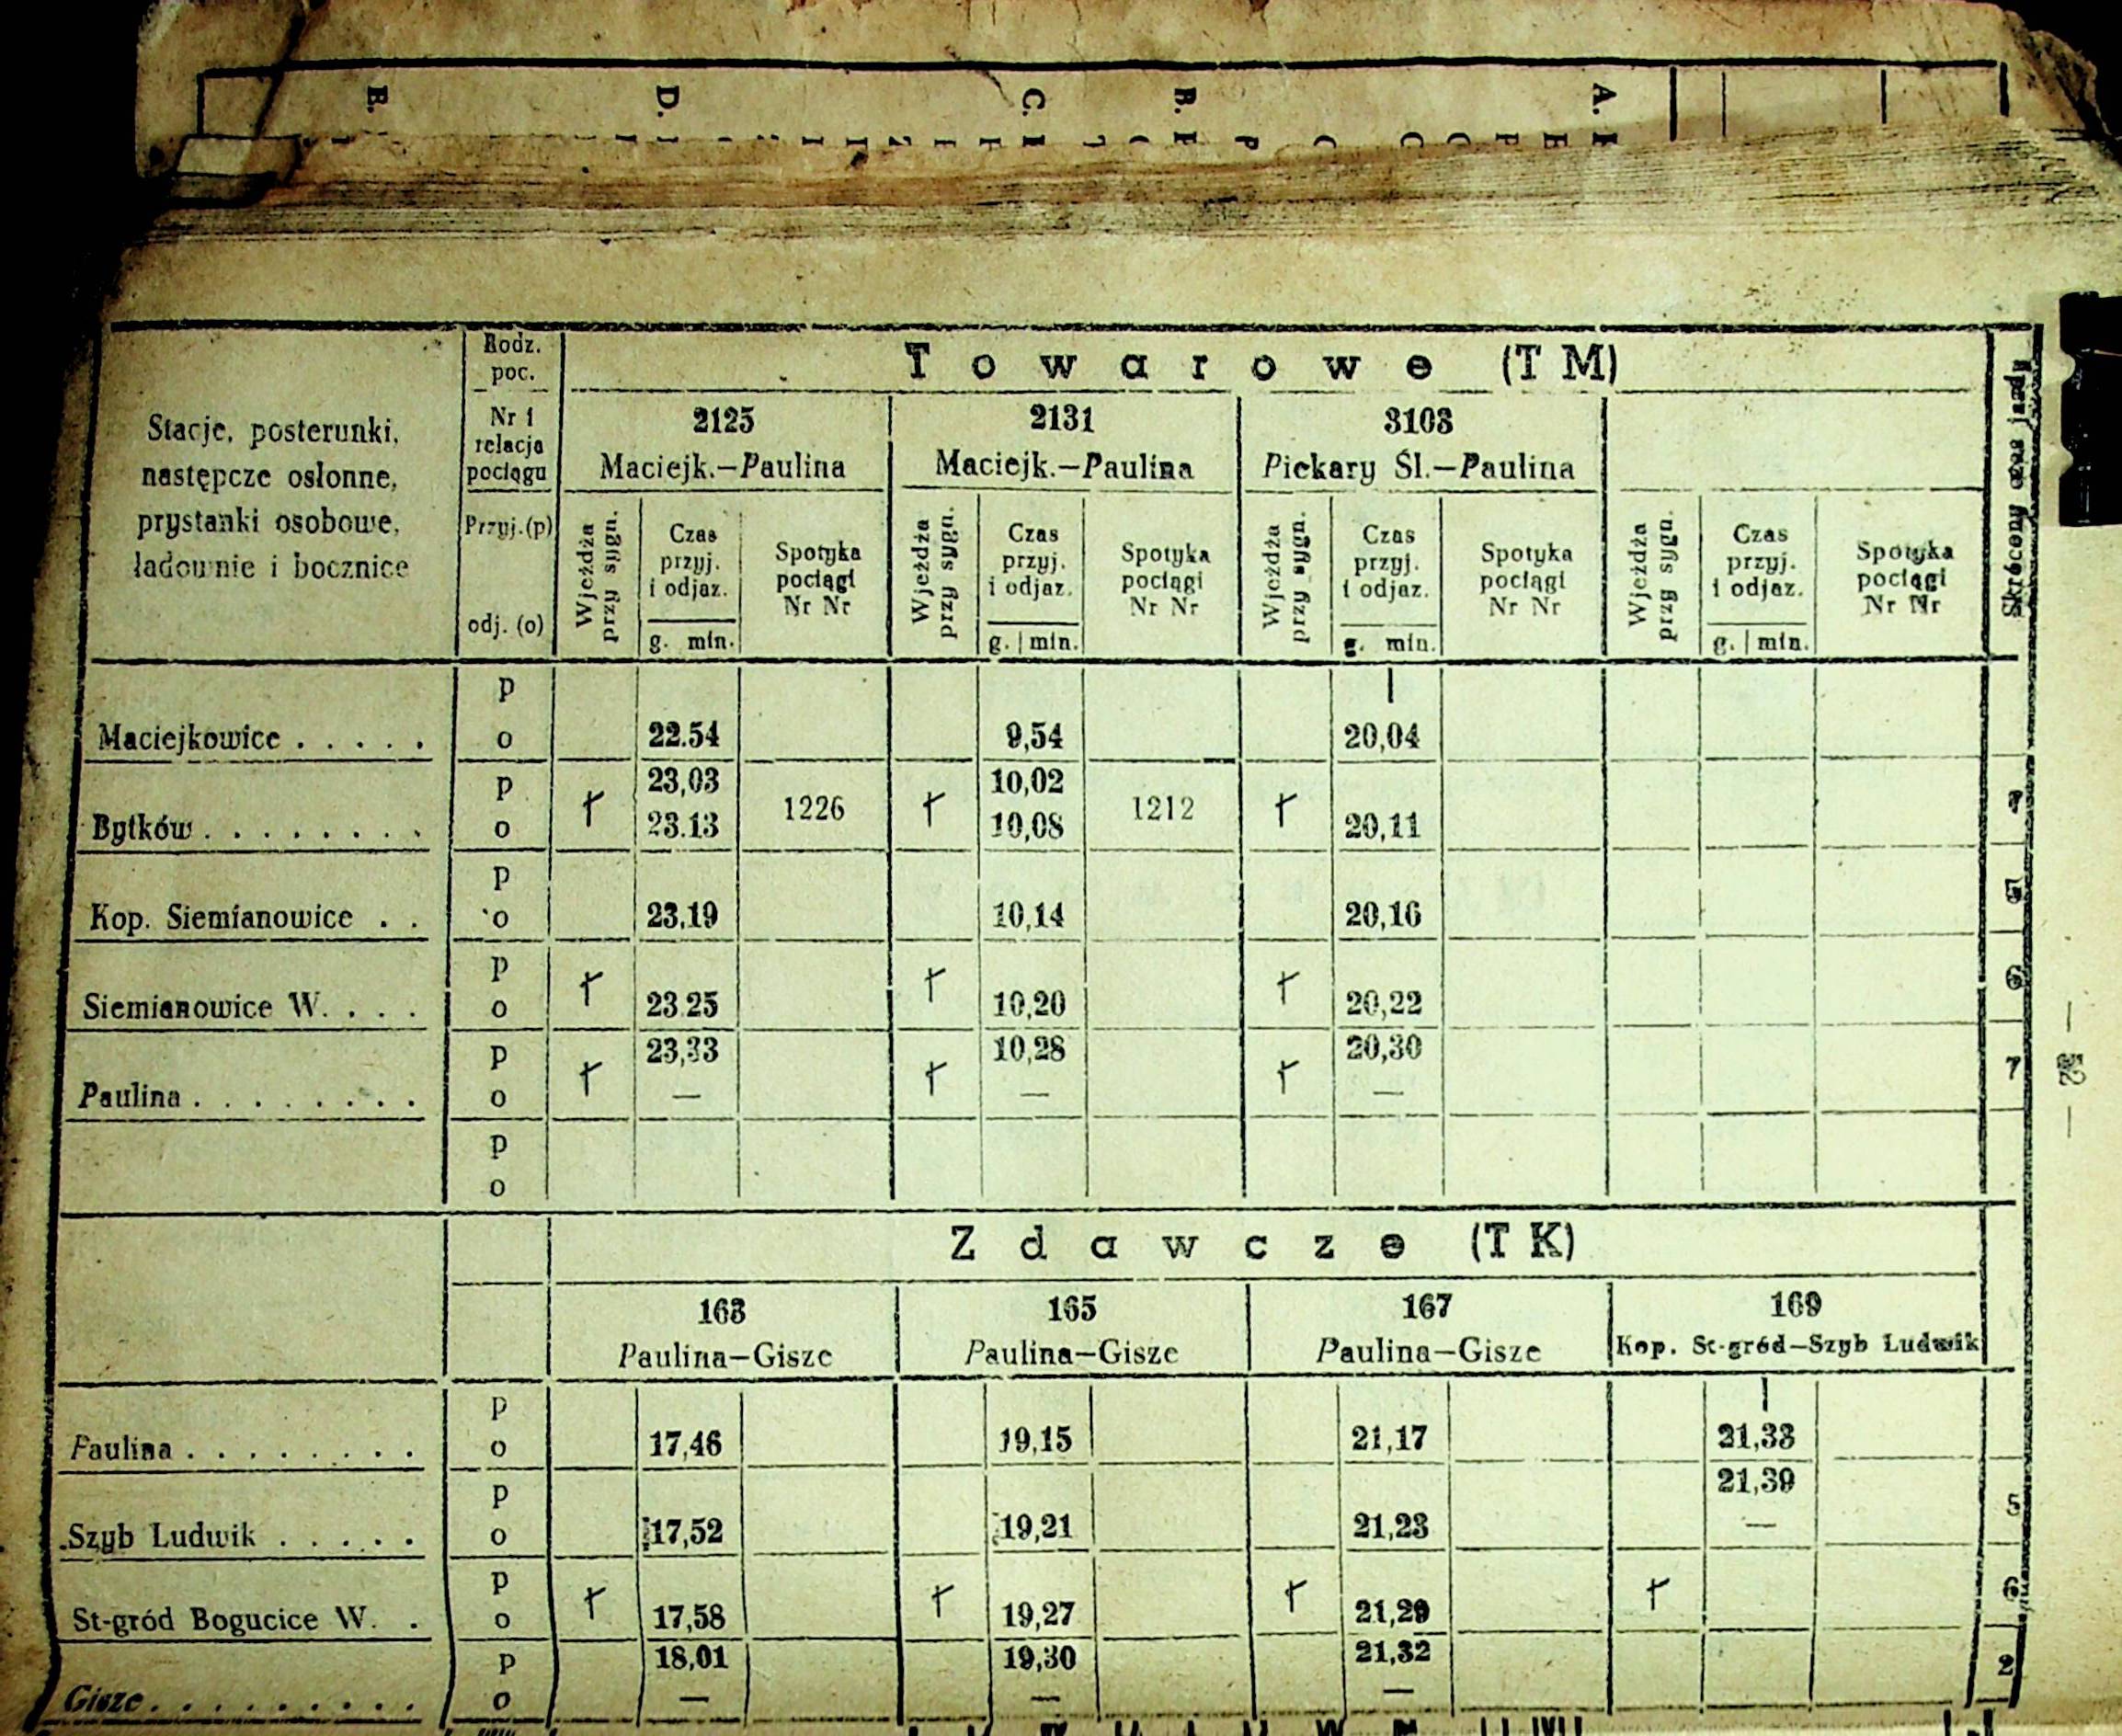 E. D. C. B. A.
Towarowe (TM)
Rodz. poc.
Stacje, posterunki, następcze osłonne, prystanki osobowe, ładownie i bocznice
Nr i relacja pociągu
2125 2131 3103
Maciejk.—Paulina Maciejk.—Paulina Piekary Śl.—Paulina
Przyj.(p)
odj. (o)
Wjeżdża przy sygn. Czas przyj. i odjaz. g. min. Spotyka pociągi Nr Nr
Wjeżdża przy sygn. Czas przyj. i odjaz. g. min. Spotyka pociągi Nr Nr
Wjeżdża przy sygn. Czas przyj. i odjaz. g. min. Spotyka pociągi Nr Nr
Wjeżdża przy sygn. Czas przyj. i odjaz. g. min. Spotyka pociągi Nr Nr
Skrócony czas jazdy
p |
Maciejkowice . . . . . o 22.54 9,54 20,04
p 23,03 1226 10,02 1212
Bytków . . . . . . . . o 23.13 10,08 20,11 7
p
Kop. Siemianowice . . o 23.19 10,14 20,16 5
p
Siemianowice W. . . . o 23.25 10,20 20,22 6
p 23,33 10,28 20,30
Paulina . . . . . . . . o — — — 7
p
o
Zdawcze (TK)
163 165 167 169
Paulina—Gisze Paulina—Gisze Paulina—Gisze Kop. St-gród—Szyb Ludwik
p |
Paulina . . . . . . . . o 17,46 19,15 21,17 21,33
p 21,39
Szyb Ludwik . . . . . o 17,52 19,21 21,23 — 5
p
St-gród Bogucice W. . o 17,58 19,27 21,29 6
p 18,01 19,30 21,32
Gisze . . . . . . . . . o — — — 2